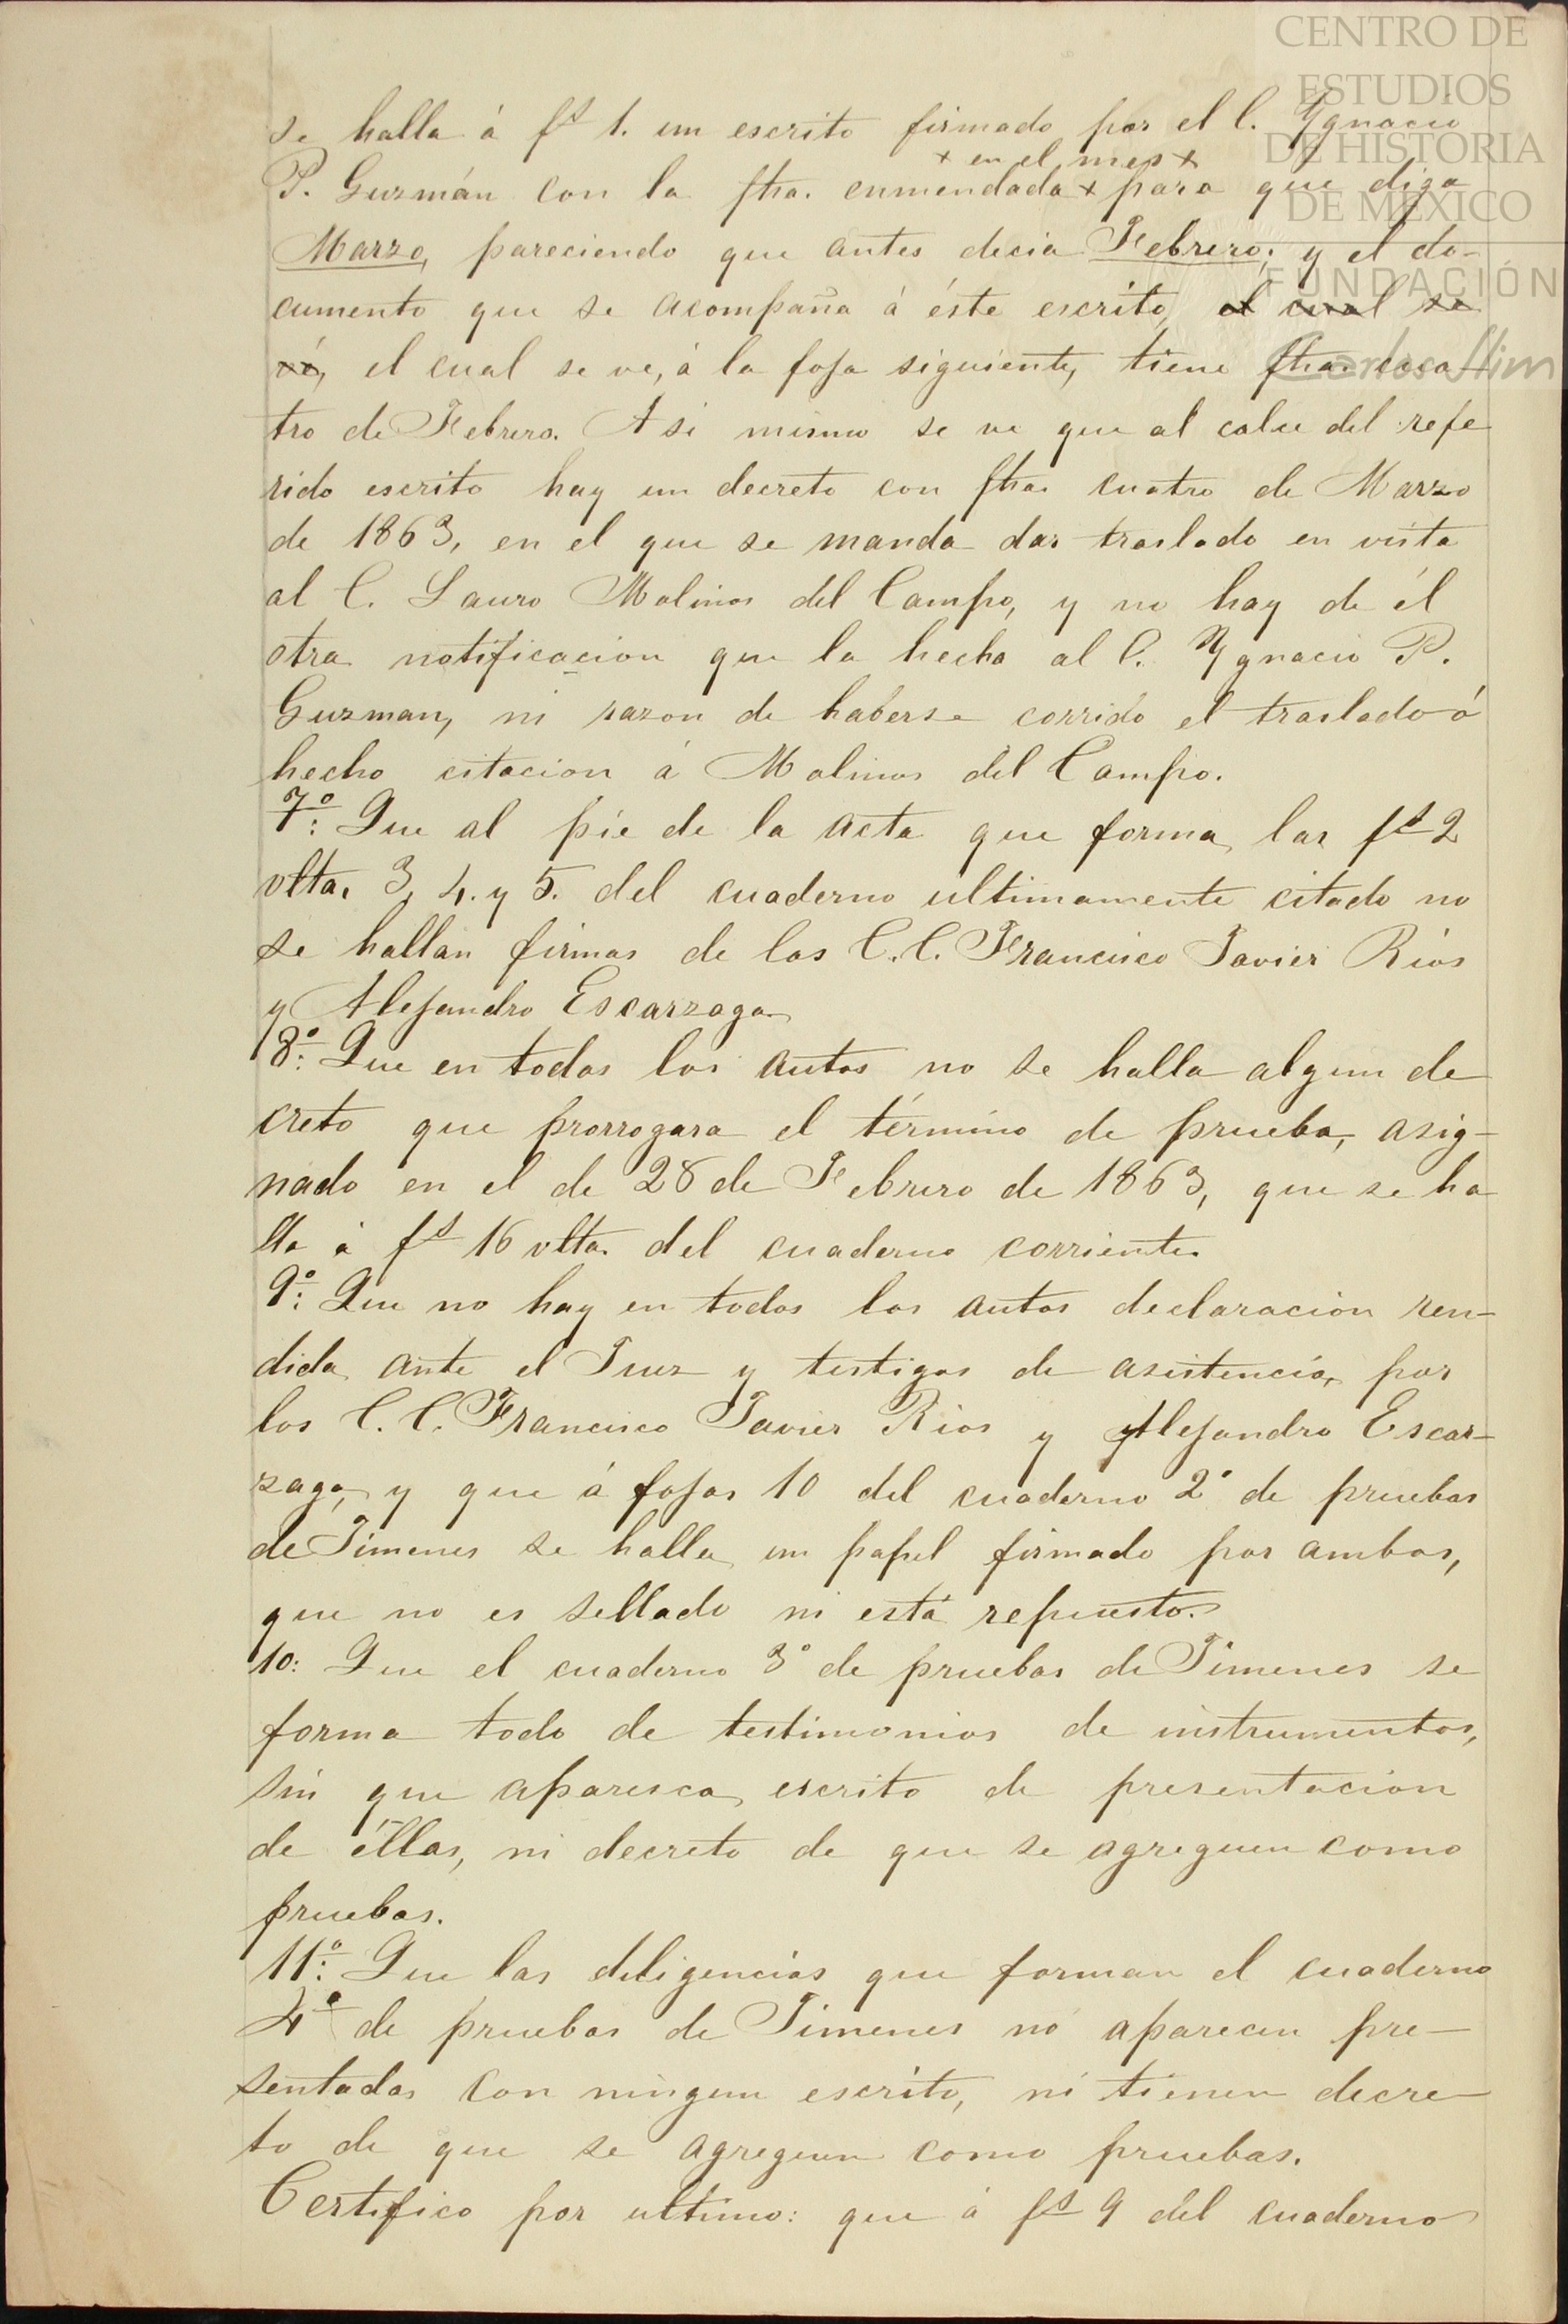 CENTRO DE
ESTUDIOS
DE HISTORIA
DE MÉXICO
FUNDACIÓN
Carlos Slim
se halla á fs 1. un escrito firmado por el C. Ygnacio
x en el mes x
P. Guzmán con la fha. enmendada x para que diga
Marzo, pareciendo que antes decia Febrero; y el do-
cumento que se acompaña á éste escrito, el cual se
vé, el cual se ve, á la foja siguiente, tiene fha. cua-
tro de Febrero. Asi mismo se ve que al calce del refe
rido escrito hay un decreto con fha. cuatro de Marzo
de 1863, en el que se manda dar traslado en vista
al C. Lauro Molinos del Campo, y no hay de él
otra notificacion que la hecha al C. Ygnacio P.
Guzman, ni razon de haberse corrido el traslado ó
hecho citacion á Molinos del Campo.
7º: Que al pie de la acta que forma las fs 2
vlta. 3, 4. y 5. del cuaderno ultimamente citado no
se hallan firmas de los C.C. Francisco Javier Rios
y Alejandro Escarzaga
8º: Que en todos los autos no se halla algun de
creto que prorrogara el término de prueba, asig-
nado en el de 28 de Febrero de 1863, que se ha
lla á fs 16 vlta. del cuaderno corriente.
9º: Que no hay en todos los autos declaracion ren-
dida ante el Juez y testigos de asistencia, por
los C. C. Francisco Javier Rios y Alejandro Escar-
zaga, y que á fojas 10 del cuaderno 2º de pruebas
de Jimenes se halla un papel firmado por ambos,
que no es sellado ni está repuesto.
10: Que el cuaderno 3º de pruebas de Jimenes se
forma todo de testimonios de instrumentos,
sin que aparesca escrito de presentacion
de éllos, ni decreto de que se agreguen como
pruebas.
11º: Que las diligencias que forman el cuaderno
4º de pruebas de Jimenes no aparecen pre-
sentadas con ningun escrito, ni tienen decre-
to de que se agreguen como pruebas.
Certifico por ultimo: que á fs 9 del cuaderno